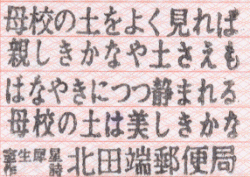 母校の土をよく見れば
親しきかなや土さえも
はなやきにつつ静まれる
母校の土は美しきかな
室生犀星 作詩 北田端郵便局